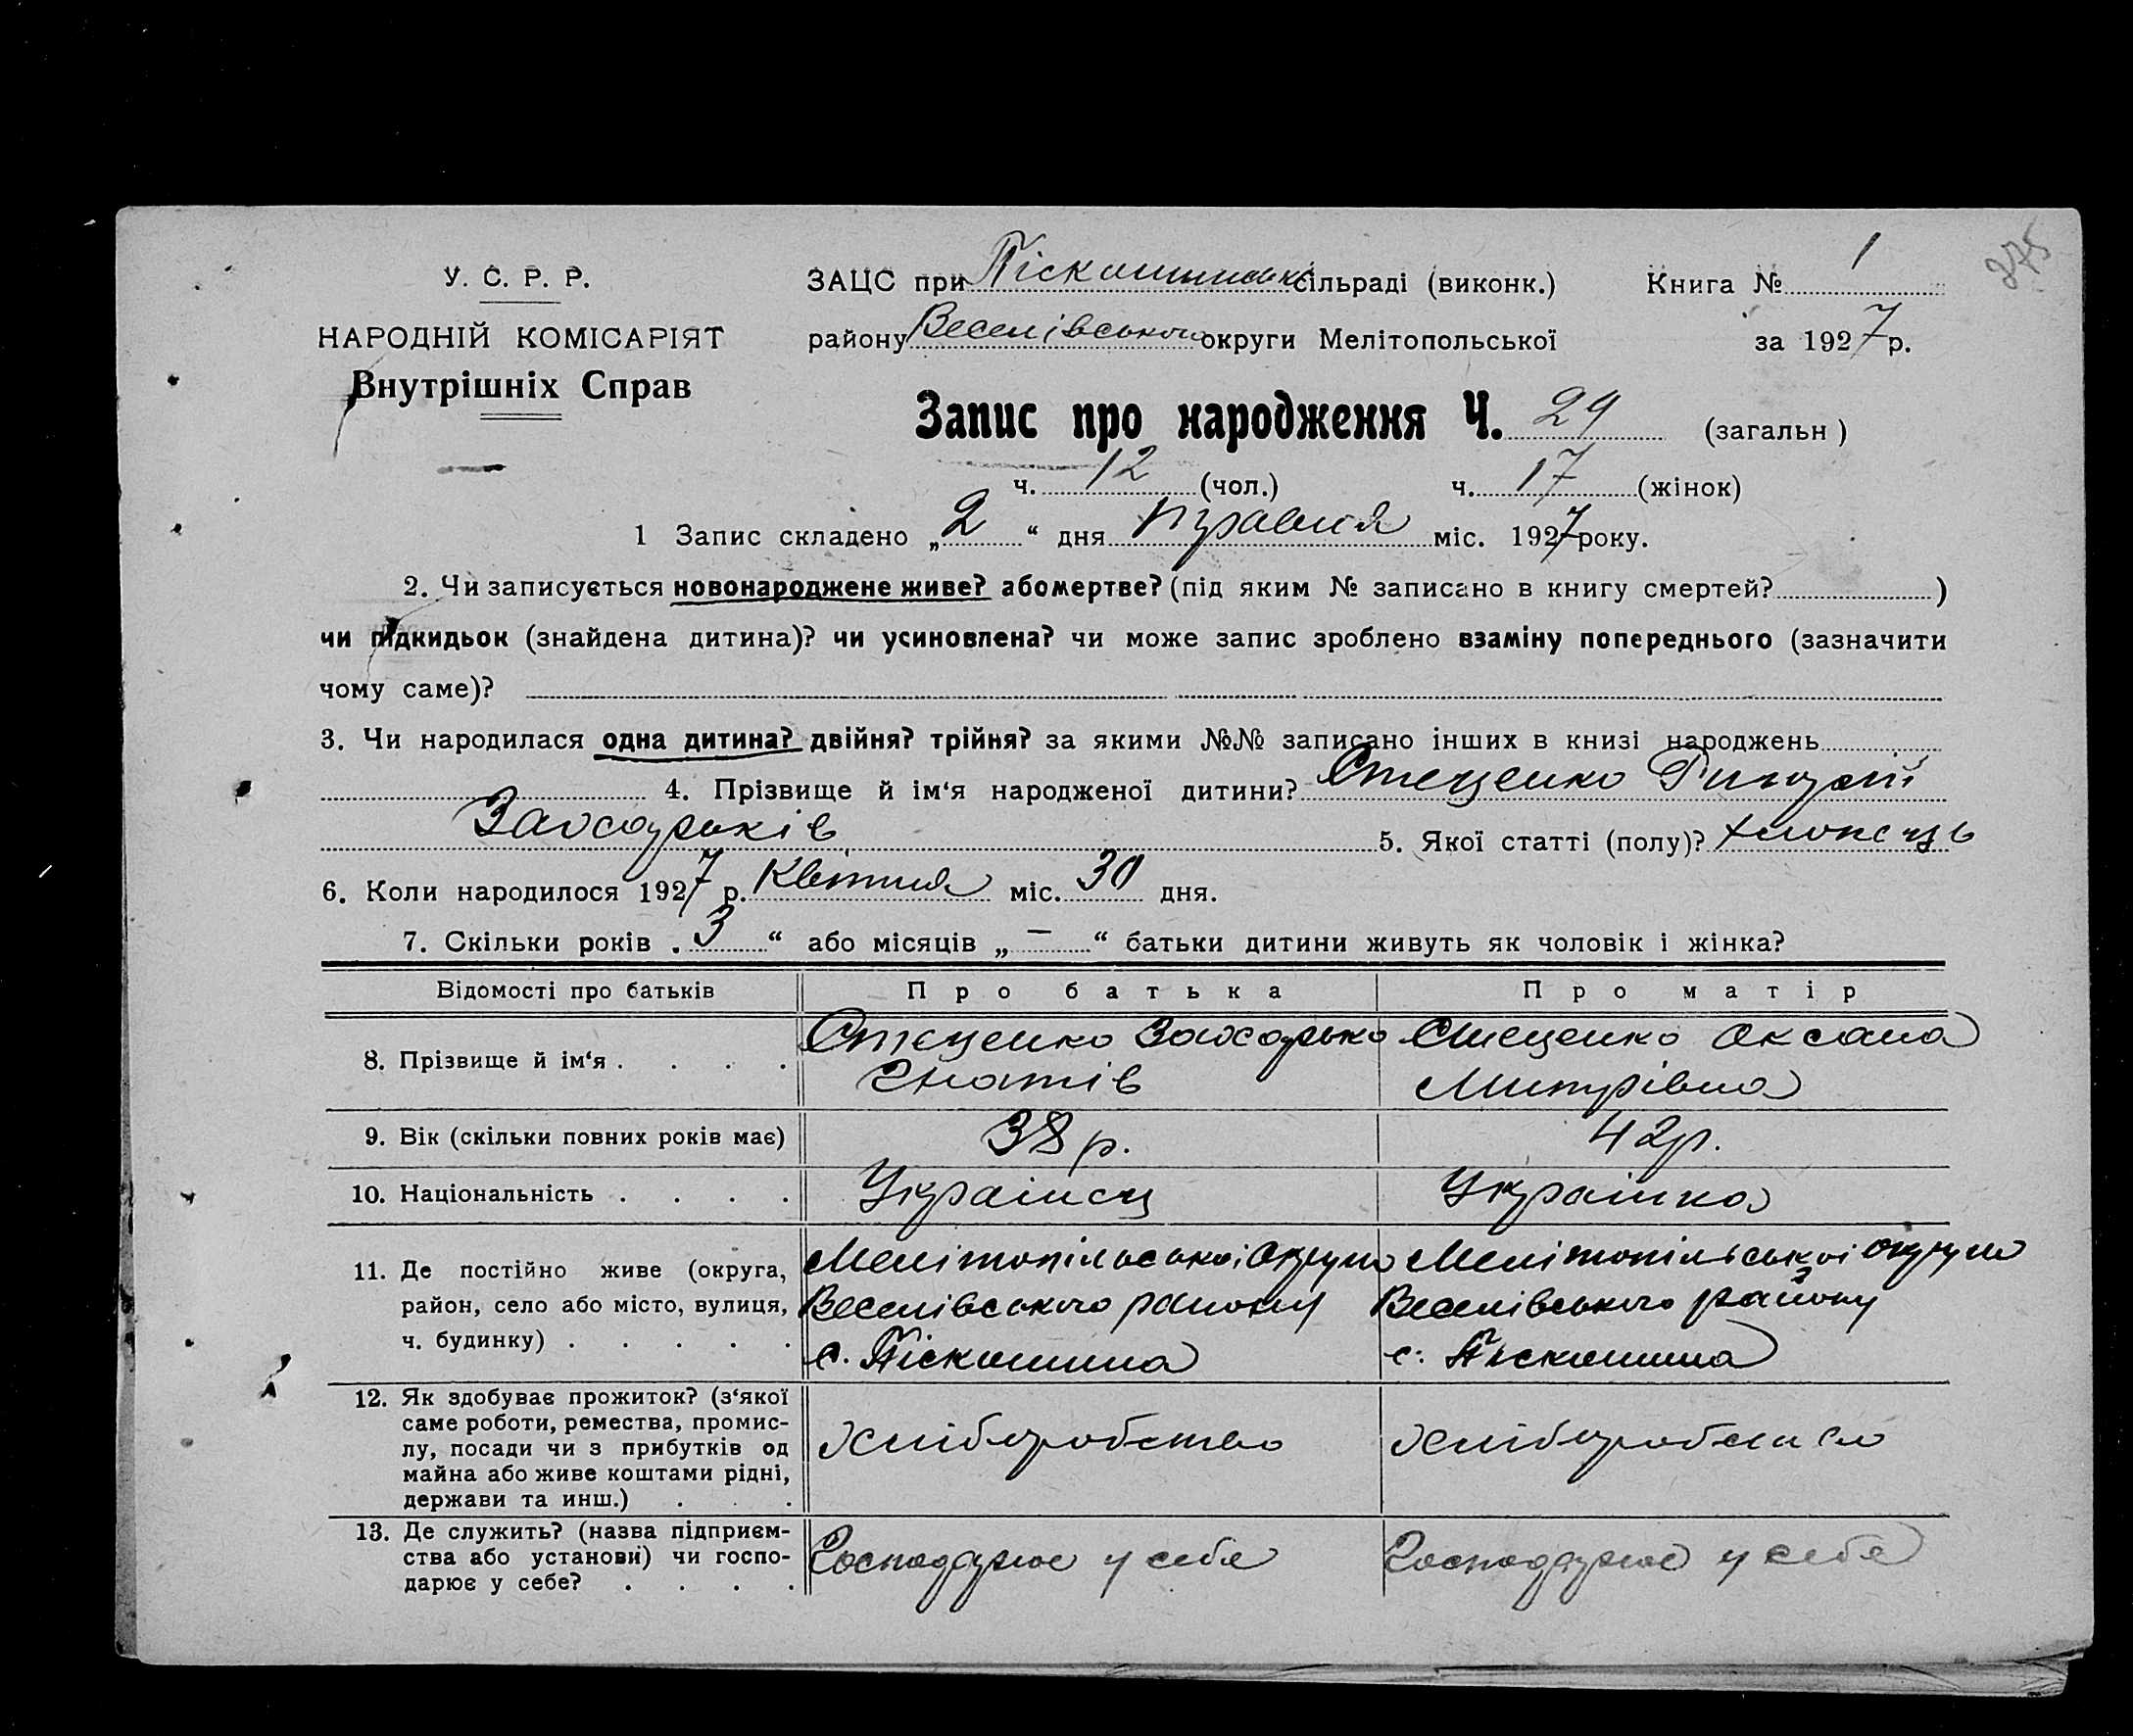 375
У. С. Р. Р.
НАРОДНІЙ КОМІСАРІЯТ
Внутрішніх Справ
ЗАЦС при Піскошинській сільраді (виконк.) Книга № 1
району Веселівського округи Мелітопольської за 1927 р.
Запис про народження Ч. 29 (загальн)
ч. 12 (чол.) ч. 17 (жінок)
1 Запис складено „2“ дня травня міс. 1927 року.
2. Чи записується новонароджене живе? або мертве? (під яким № записано в книгу смертей? )
чи підкидьок (знайдена дитина)? чи усиновлена? чи може запис зроблено взаміну попереднього (зазначити
чому саме)?
3. Чи народилася одна дитина? двійня? трійня? за якими №№ записано інших в книзі народжень
4. Прізвище й ім‘я народженої дитини? Стеценко
Захарьків 5. Якої статті (полу)? хлопець
6. Коли народилося 1927 р. Квітня міс. 30 дня.
7. Скільки років „3“ або місяців „—“ батьки дитини живуть як чоловік і жінка?
Відомості про батьків Про батька Про матір
8. Прізвище й ім‘я . . . . Стеценко Захарько Гнатів Стеценко Оксана Митрівна
9. Вік (скільки повних років має) 38 р. 42 р.
10. Національність . . . . Українец Українка
11. Де постійно живе (округа, Мелітопільської округи Мелітопільської округи
район, село або місто, вулиця, Веселівського району Веселівського району
ч. будинку) . . . . . с. Піскошина с. Піскошина
12. Як здобуває прожиток? (з‘якої
саме роботи, ремества, промис-
лу, посади чи з прибутків од хліборобство хліборобство
майна або живе коштами рідні,
держави та инш.) . . .
13. Де служить? (назва підприєм-
ства або установи) чи госпо- Господарює у себе Господарює у себе
дарює у себе? . . . .